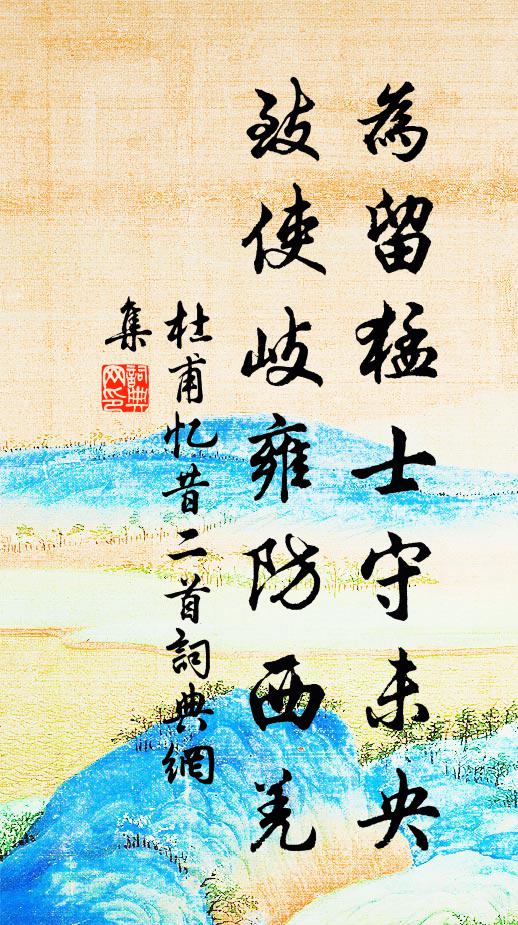 為留猛士守未央
致使岐雍防西羌
杜甫忆昔二首詞典網
集
詞典
网印